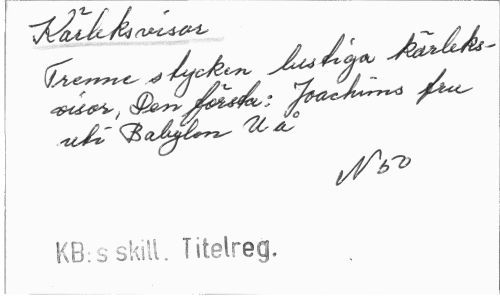 Kärleksvisor
Trenne stycken lustiga kärleks-
visor, Den första: Joachims fru
uti Babylon U å
N 50
KB:s skill. Titelreg.